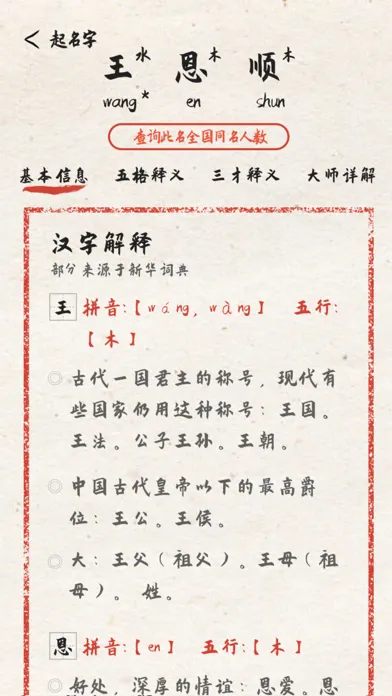 < 起名字
王水 恩木 顺木
wang* en shun
查询此名全国同名人数
基本信息 五格释义 三才释义 大师详解
汉字解释
部分来源于新华词典
王 拼音:【wáng, wàng】 五行:
【木】
古代一国君主的称号，现代有
些国家仍用这种称号：王国。
王法。公子王孙。王朝。
中国古代皇帝以下的最高爵
位：王公。王侯。
大：王父（祖父）。王母（祖
母）。 姓。
恩 拼音:【en】 五行:【木】
好处，深厚的情谊：恩爱。恩